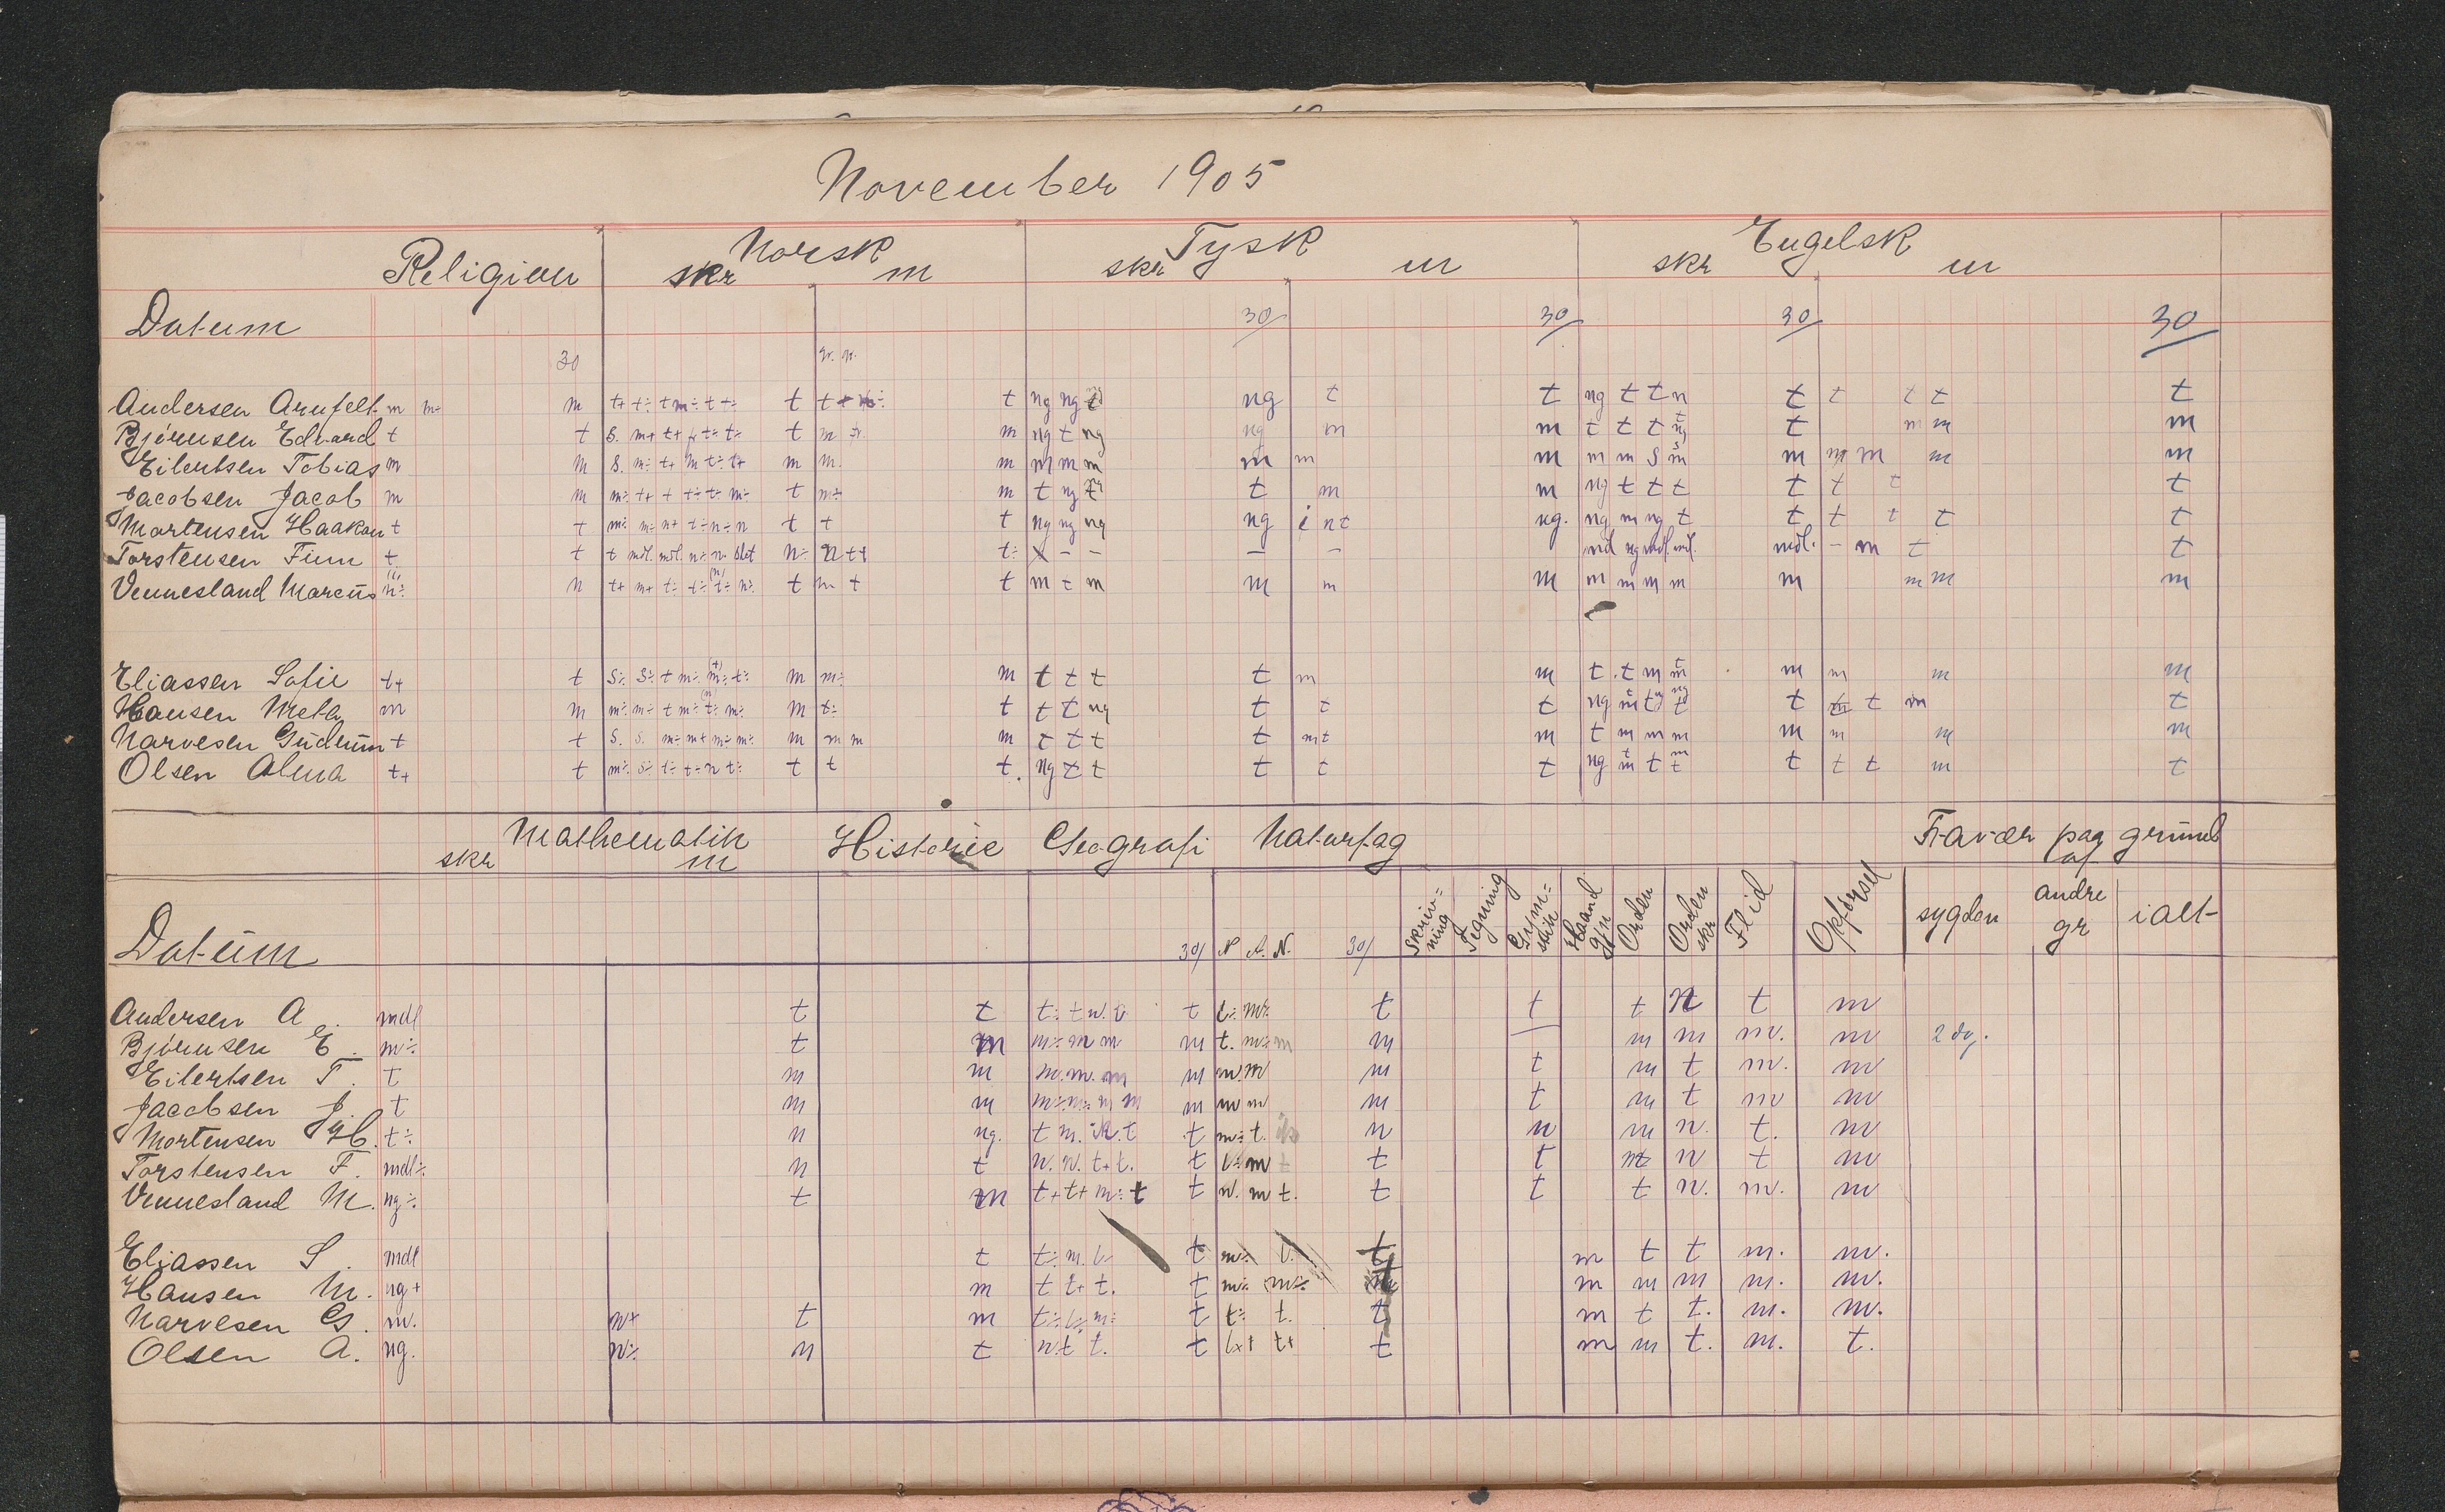 November 1905
Religion Norsk Tysk Engelsk
skr m skr m skr m
Datum 30 30 30 30
30
Andersen Arnfelt m m÷ m t+ t÷ t m÷ t t÷ t t t ng ng ng t t ng t t n t t t t t
Bjørnsen Edvard t t S. m+ t+ t÷ t÷ t m m ng t ng ng m m t t t t m m m
Eilertsen Tobias m m S. m÷ t+ m t÷ t+ m m. m m m m m m m m m S m m m m m
Jacobsen Jacob m m m÷ t+ t t÷ t÷ m÷ t m÷ m t ng t t m m ng t t t t t t t
Mortensen Haakon t t m÷ m÷ n+ t÷ n÷ n t t t ng ng ng ng i nt ng. ng m ng t t t t t t
Torstensen Finn t t t mdl. mdl. n÷ n÷ slet n÷ n t t t÷ – – – – mdl ng mdl. mdl. mdl. – m t t
Vennesland Marcus n÷ n t+ m+ t÷ t÷ t÷ n÷ t m t t m t m m m m m m m m m m m m
Eliassen Sofie t+ t S÷ S÷ t m÷ m÷ t÷ m m÷ m t t t t m m t. t m m m m m m
Hansen Meta m m m÷ m÷ t m÷ t÷ m÷ m t÷ t t t ng t t t ng m t t t t m t
Narvesen Gudrun t t S. S. m÷ m+ m÷ m÷ m m m m t t t t mt m t m m m m m m m
Olsen Alma t+ t m÷ S÷ t÷ t÷ n t÷ t t t. ng t t t t t ng m t t t t t m t
Mathematik Historie Geografi Naturfag Fravær paa grund af
skr m
Datum 30/ N A. N. 30/ Skriv-ning Tegning Gym-stik Haand gjn Orden Orden skr Flid Opførsel sygdom andre gr ialt
Andersen A. mdl t t t÷ t t t÷ m÷ t t t n t m
Bjørnsen E. m÷ t m m÷ m m m t. m÷ m m – m m m. m 2 dg.
Eilertsen T. t m m m. m. m m m. m m t m t m. m
Jacobsen J. t m m m÷ m÷ m m m m m m t m t m m
Mortensen H. t÷ n ng. t m. t t m÷ t. n n m n. t. m
Torstensen F. mdl÷ n t n. n. t+ t. t t÷ m t t n t m
Vennesland M. ng÷ t m t+ t+ m÷ t t n. m t. t t t n. m. m
Eliassen S. mdl t t÷ m. t t m÷ t. t m t t m. m.
Hansen M. ng+ m t t+ t. t m÷ m÷ t m m m m. m.
Narvesen G. m. m+ t m t÷ t÷ m÷ t t÷ t. t m t t. m. m.
Olsen A. ng. n÷ n t n. t t. t t+ t m m t. m. t.